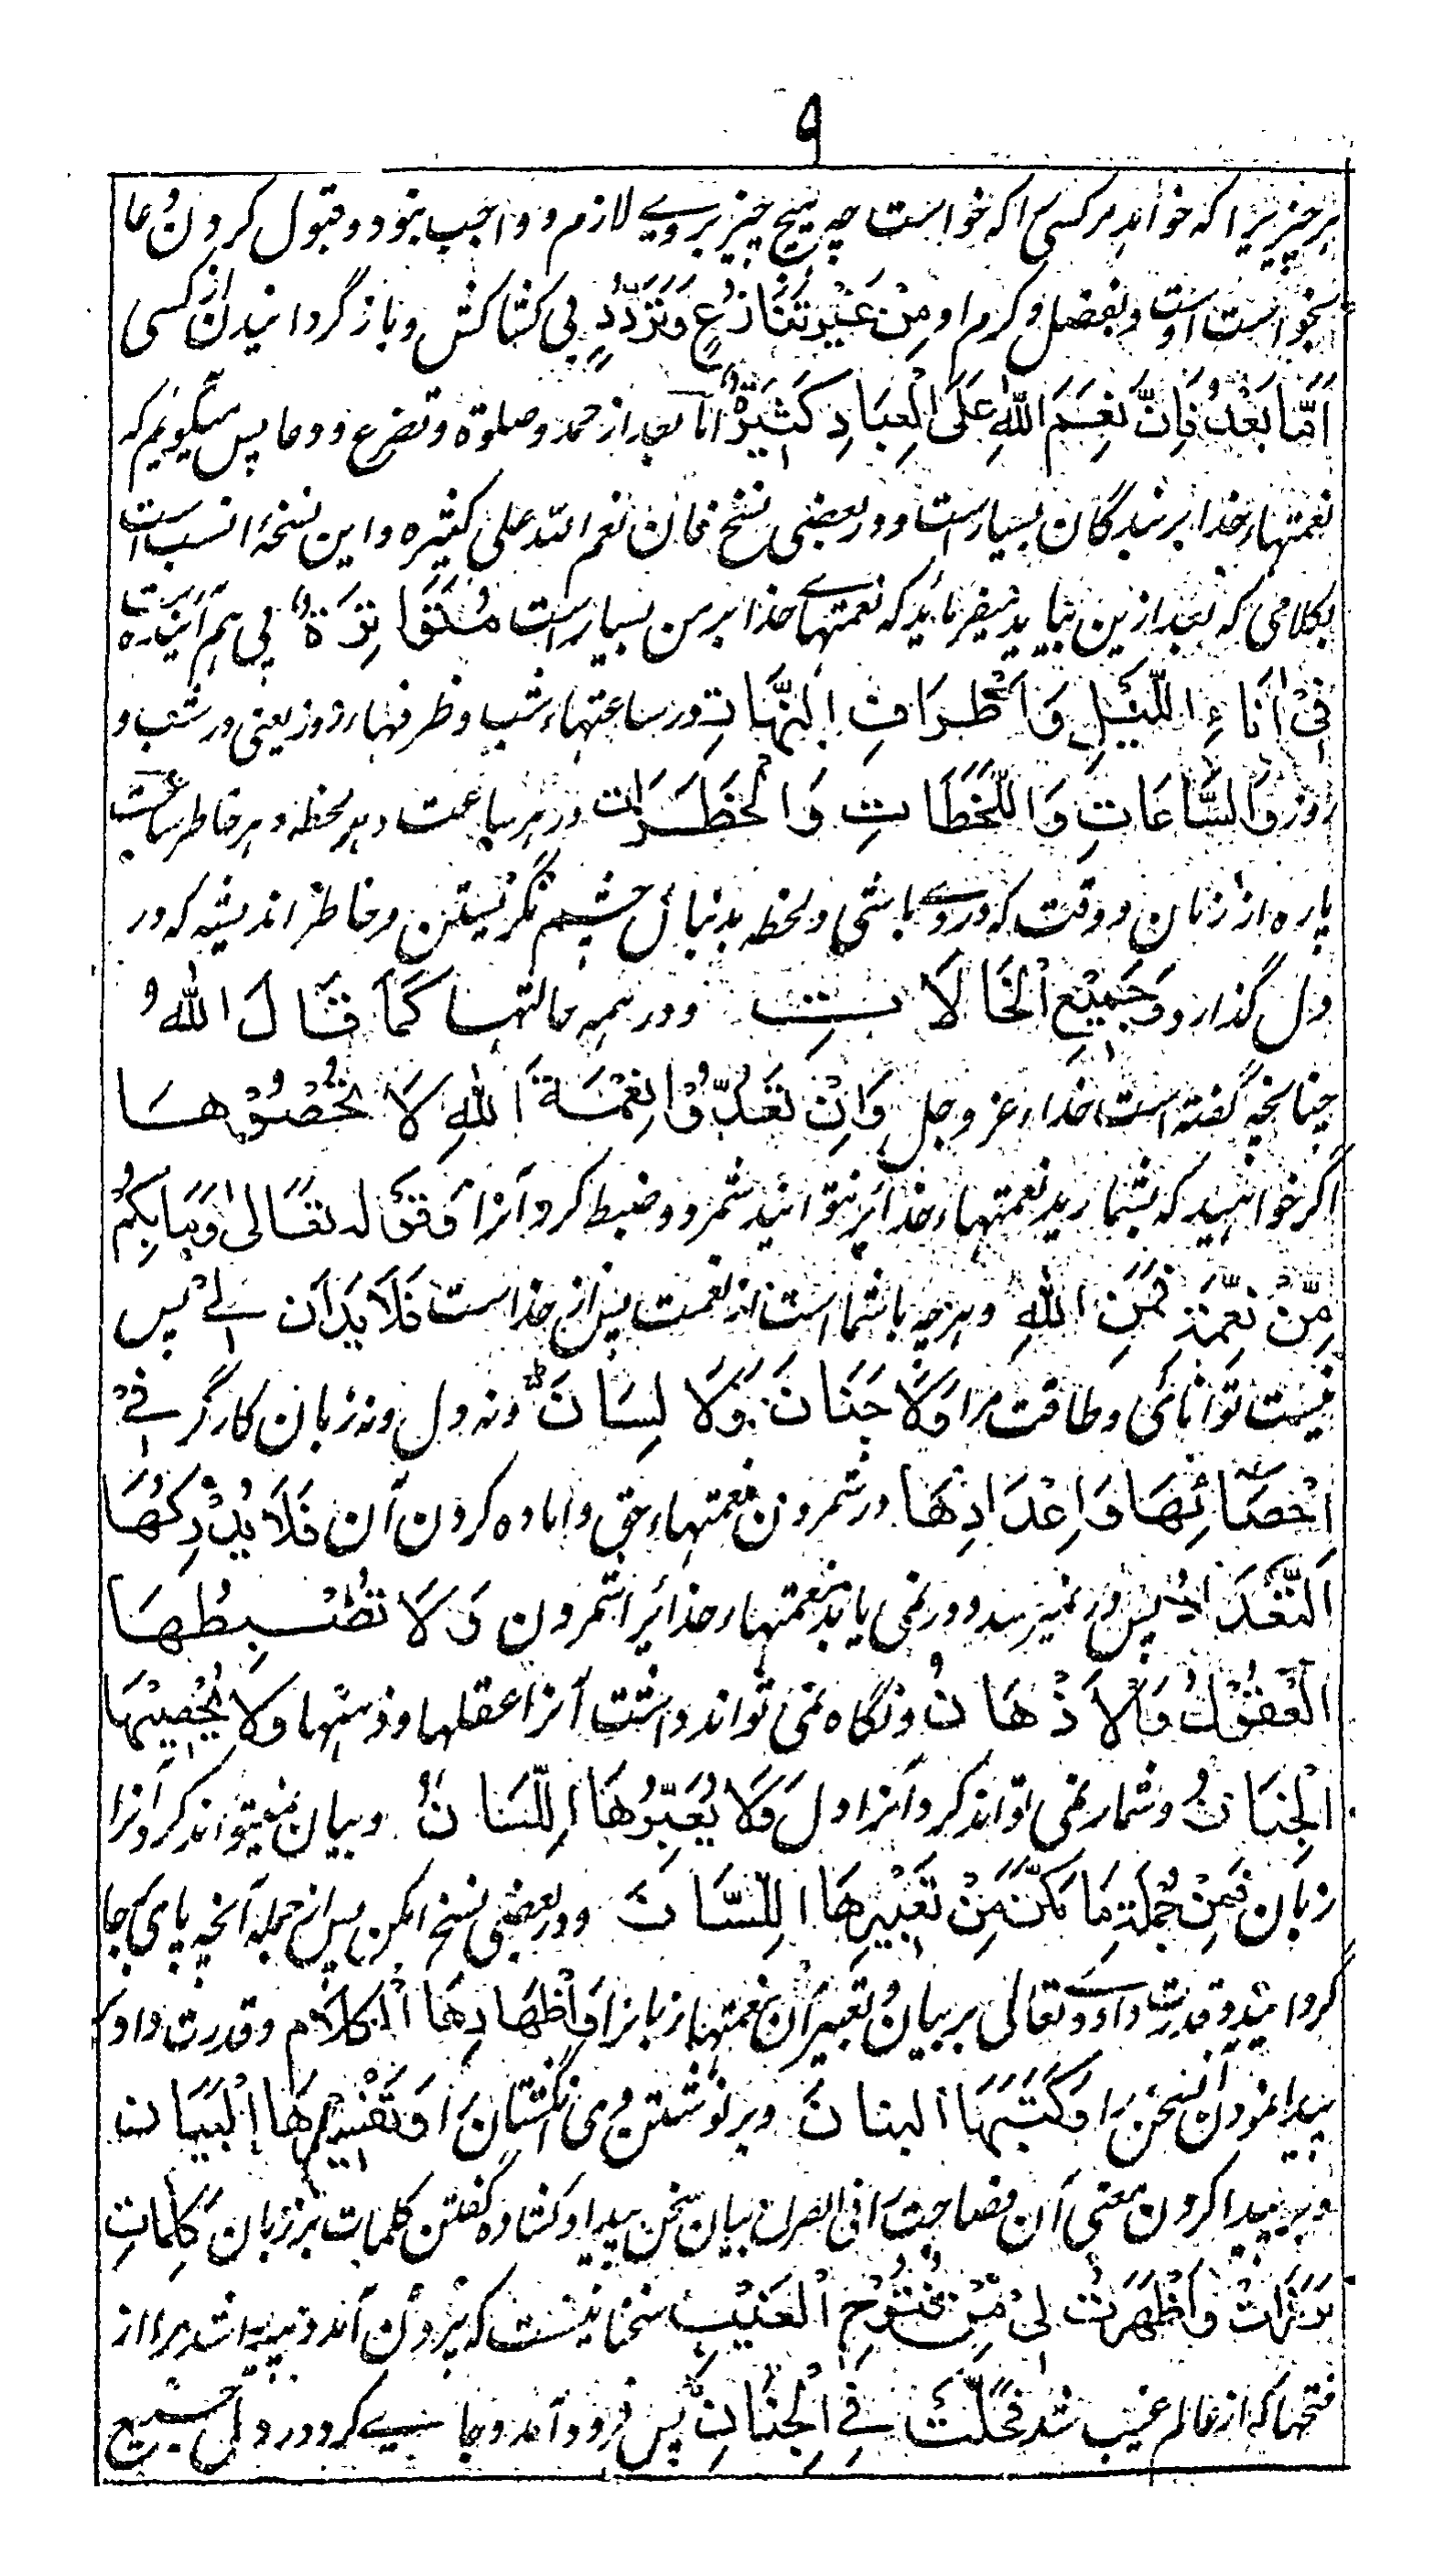 ۹
هر چیزیرا که خواند هر کسی را که خواست چه هیچ چیز بروے لازم و واجب نبود و قبول کردن دعا
بخواست اوست و بفضل و کرم او مِنْ غَیْرِ تَنَازُعٍ وَتَرَدُّدٍ بی کشاکش و باز گردانیدن از کسی
اَمَّا بَعْدُ فَاِنَّ نِعَمَ اللّٰهِ عَلَی الْعِبَادِ کَثِیْرَةٌ اما بعد از حمد و صلوة و تضرع و دعا پس میگویم که
نعمتهاء خدا بر بندگان بسیارست و در بعضی نسخ فان نعم الله علی کثیره و این نسخۀ انسب است
بکلامی که بعد ازین بیاید میفرماید که نعمتهاے خدا بر من بسیارست مُتَوَاتِرَةٌ پی هم آینده است
فِیْ اٰنَاءِ اللَّیْلِ وَاَطْرَافِ النَّهَارِ در ساعتهاء شب و طرفهاء روز یعنی در شب و
روز وَالسَّاعَاتِ وَاللَّحَظَاتِ وَالْخَطَرَاتِ در هر ساعت و هر لحظه و هر خاطر ساعت
پاره از زمان و وقت که دروے باشی و لحظه بدنبال چشم نگریستن و خاطر اندیشه که در
دل گذارد وَجَمِیْعِ الْحَالَاتِ و در همه حالتها کَمَا قَالَ اللّٰهُ
چنانچه گفته است خداء عز و جل وَاِنْ تَعُدُّوْا نِعْمَةَ اللّٰهِ لَا تُحْصُوْهَا
اگر خواهید که بشمارید نعمتهاء خدایرا نتوانید شمرد و ضبط کرد آنرا وَقَوله تَعَالیٰ وَمَا بِکُمْ
مِّنْ نِعْمَةٍ فَمِنَ اللّٰهِ و هر چه باشما است از نعمت پس از خداست فَلَا یَدَانِ لِیْ پس
نیست توانائی و طاقت مرا وَلَا جَنَانَ وَلَا لِسَانَ و نه دل و نه زبان کارگر فِیْ
اِحْصَائِهَا وَاِعْدَادِهَا در شمردن نعمتهاء حق و اماده کردن آن فَلَا یُدْرِکُهَا
التَّعْدَادُ پس در نمیرسد و در نمی یابد نعمتهاء خدایرا شمردن وَلَا تَضْبِطُهَا
الْعُقُوْلُ وَالْاَذْهَانُ و نگاه نمی تواند داشت آنرا عقلها و ذهنها وَلَا یُحْصِیْهَا
الْجِنَانُ و شمار نمی تواند کرد آنرا دل وَلَا یُعَبِّرُهَا اللِّسَانُ و بیان نمیتواند کرد آنرا
زبان فَمِنْ جُمْلَةِ مَا مَکَّنَ مِنْ تَعْبِیْرِهَا اللِّسَانَ و در بعضی نسخ امکن پس از جمله آنچه پای بجا
گردانید و قدرت داد وے تعالی بر بیان و تعبیر آن نعمتها زبانرا وَاِظْهَارِهَا الْکَلَامَ و قدرت داد بر
پیدا نمودن آن سخن را وَکَتْبِهَا البنانَ و بر نوشتن وی انگشتان را وَتَفْسِیْرِهَا الْبَیَانَ
و بر پیدا کردن معنی آن فصاحت را فی الصراح بیان سخن پیدا و کشاده گفتن کلمات بر زبان کَلِمَاتٍ
بَرَزَتْ وَاَظْهَرَتْ لِیْ مِنْ فُتُوْحِ الْغَیْبِ سخنانیست که بیرون آمد و پیدا شد مرا از
فتحها که از عالم غیب شد فَحَلَّتْ فِی الْجَنَانِ پس فرود آمد و جایے کرد در دل جمیع